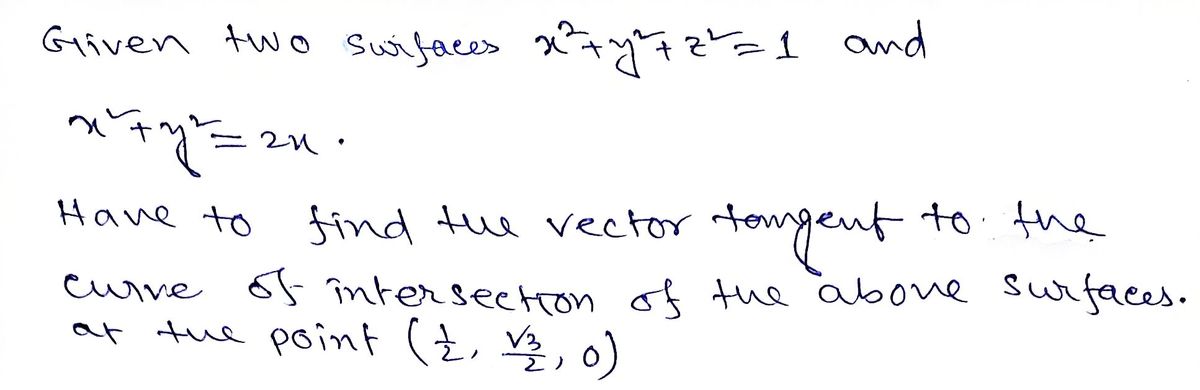 Given two surfaces x²+y²+z²=1 and
x²+y²=2x.
Have to find the vector tangent to the
curve of intersection of the above surfaces.
at the point (1/2, √3/2, 0)